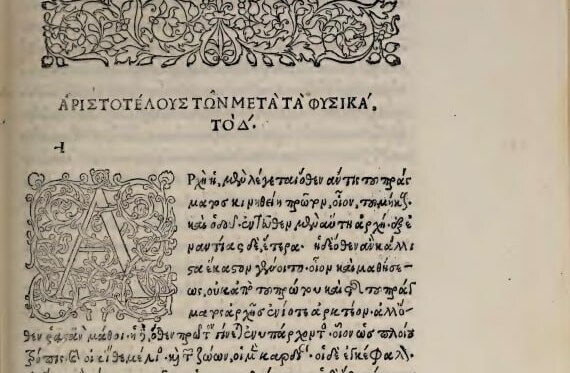 ΑΡΙΣΤΟΤΕΛΟΥΣ ΤΩΝ ΜΕΤΑ ΤΑ ΦΥΣΙΚΑ,
ΤΟ Δ.
Α ΡΧὴ ἡ μὲν λέγεται ὅθεν ἄν τις τοῦ πράγ
ματος κινηθείη πρῶτον, οἷον, τοῦ μήκους.
καὶ ὁδοῦ. ἐντεῦθεν μὲν αὕτη ἀρχή. ἐξ ἐ
ναντίας δὲ, ἑτέρα. ἡ δὲ ὅθεν ἂν κάλλι
στα ἕκαστον γένοιτο. οἷον καὶ μαθήσε-
ως, οὐκ ἀπὸ τοῦ πρώτου καὶ τῆς τοῦ πράγ
ματος ἀρχῆς ἐνίοτε ἀρκτέον. ἀλλ' ὅ-
θεν ῥᾷστ' ἂν μάθοι. ἡ δὲ, ὅθεν πρῶτον γίνεται ἐνυπάρχοντος. οἷον ὡς πλοίου
τρόπις. καὶ οἰκίας θεμέλιος. καὶ τῶν ζώων, οἱ μὲν καρδίαν. οἱ δὲ ἐγκέφαλον.